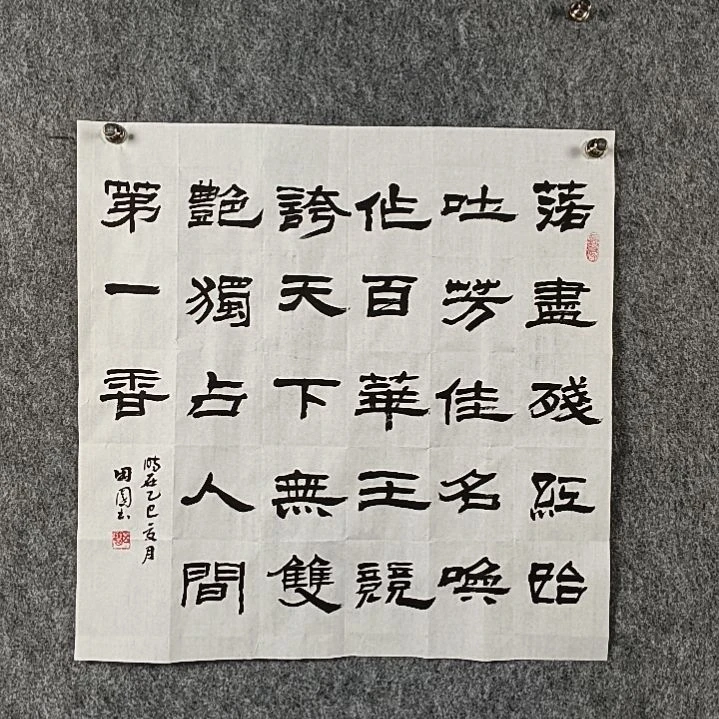 落盡殘紅始
吐芳佳名喚
作百華王競
誇天下無雙
艷獨占人間
第一香
时在乙巳夏月
田园书